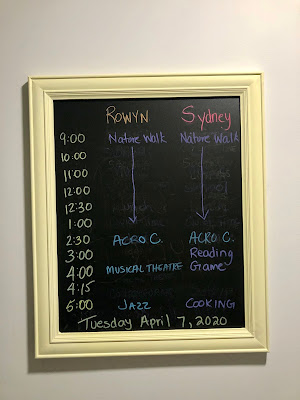 ROWYN Sydney
9:00 Nature Walk Nature Walk
10:00
11:00
12:00
12:30
1:00
2:30 ACRO C. ACRO C.
3:00 Reading
4:00 MUSICAL THEATRE Game
4:15
5:00 JAZZ COOKING
Tuesday April 7, 2020